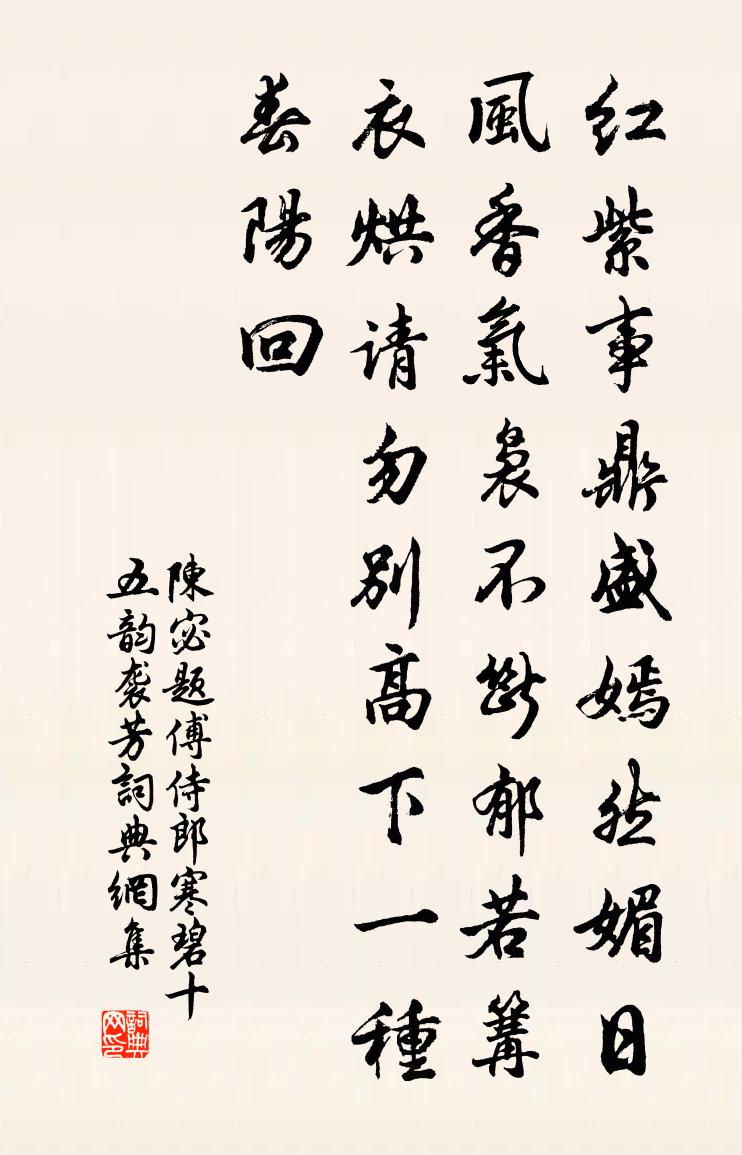 红紫事鼎盛嫣然媚日
風香氣裊不斷郁若篝
衣烘请勿別高下一種
春陽回
陳宓题傅侍郎寒碧十
五韵袭芳詞典網集
詞典
网印